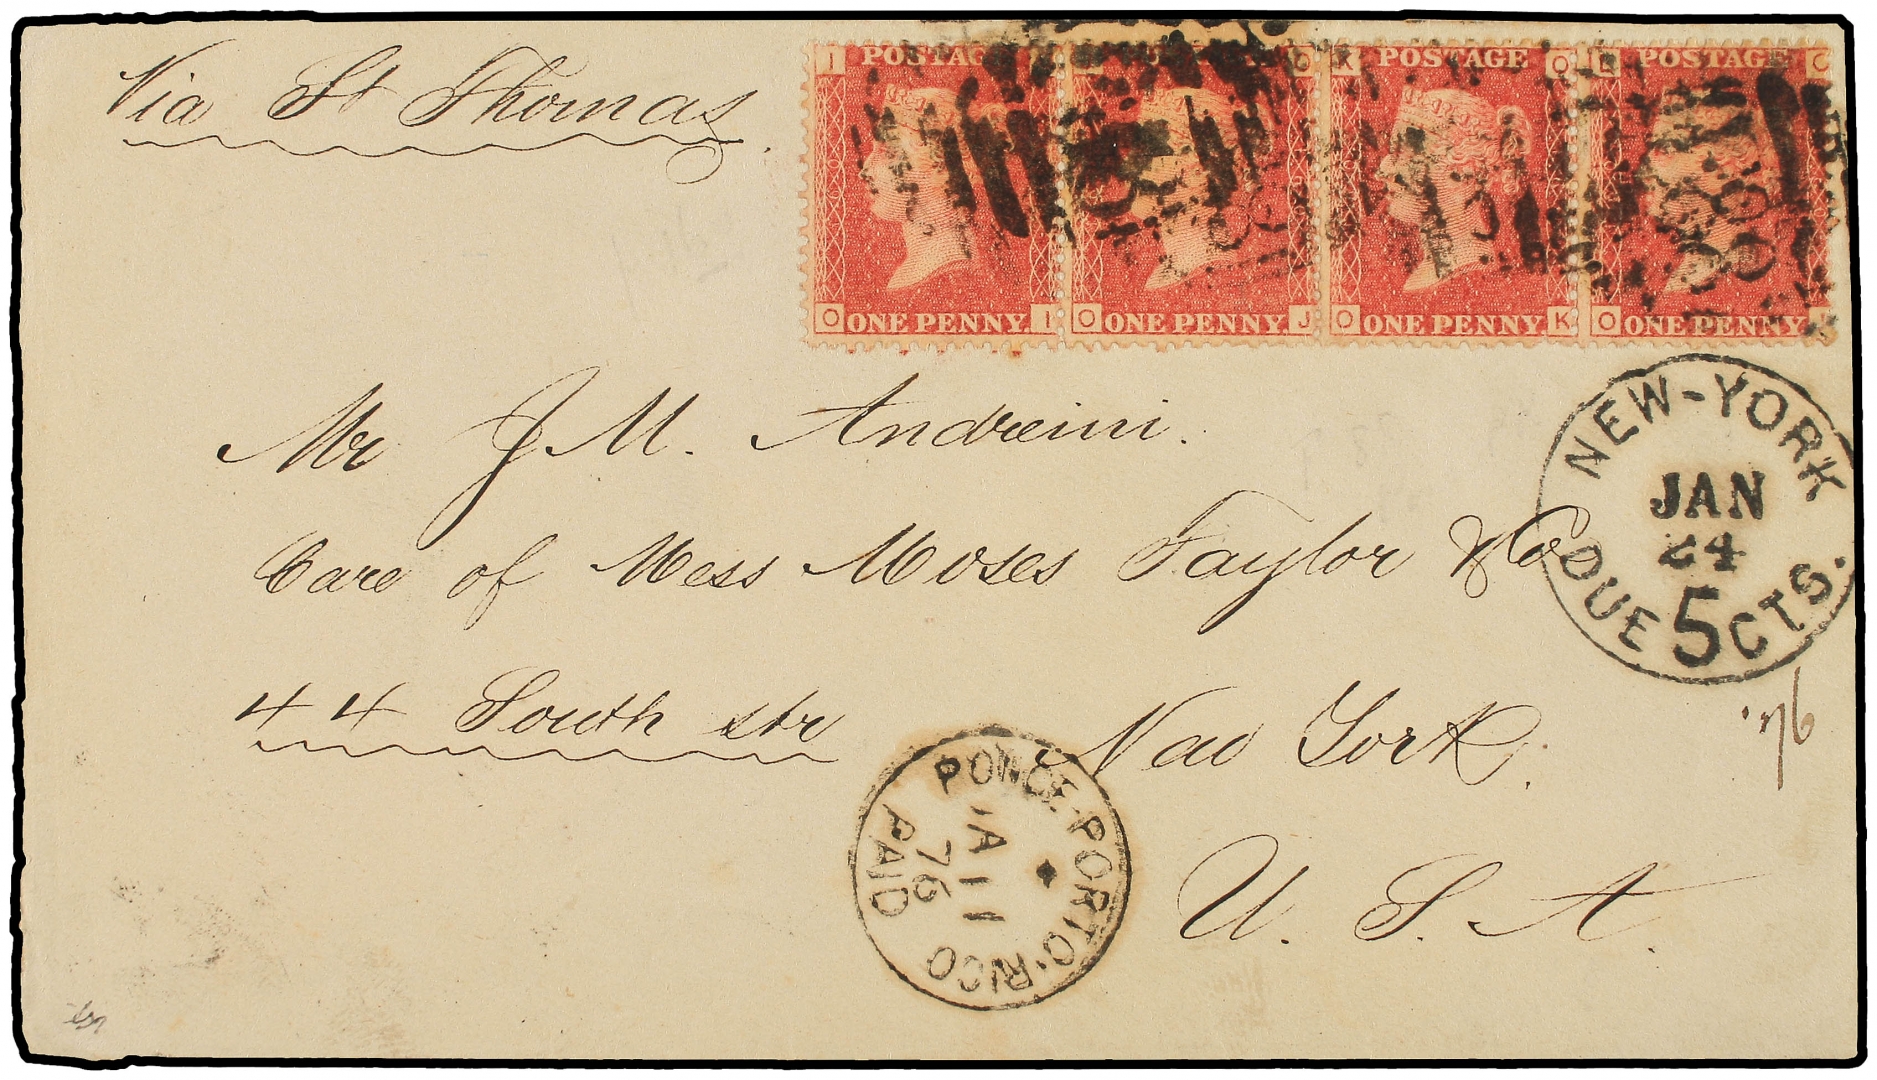 Via St Thomas.
I POSTAGE O POSTAGE K POSTAGE O L POSTAGE O
O ONE PENNY. I O ONE PENNY. J O ONE PENNY. K O ONE PENNY.
Mr J. M. Andreini.
Care of Mess Moses Taylor & Co
44 South str New York.
U. S. A.
NEW-YORK
JAN
24
DUE 5 CTS.
'76
PONCE·PORTO·RICO
JA 11
76
PAID